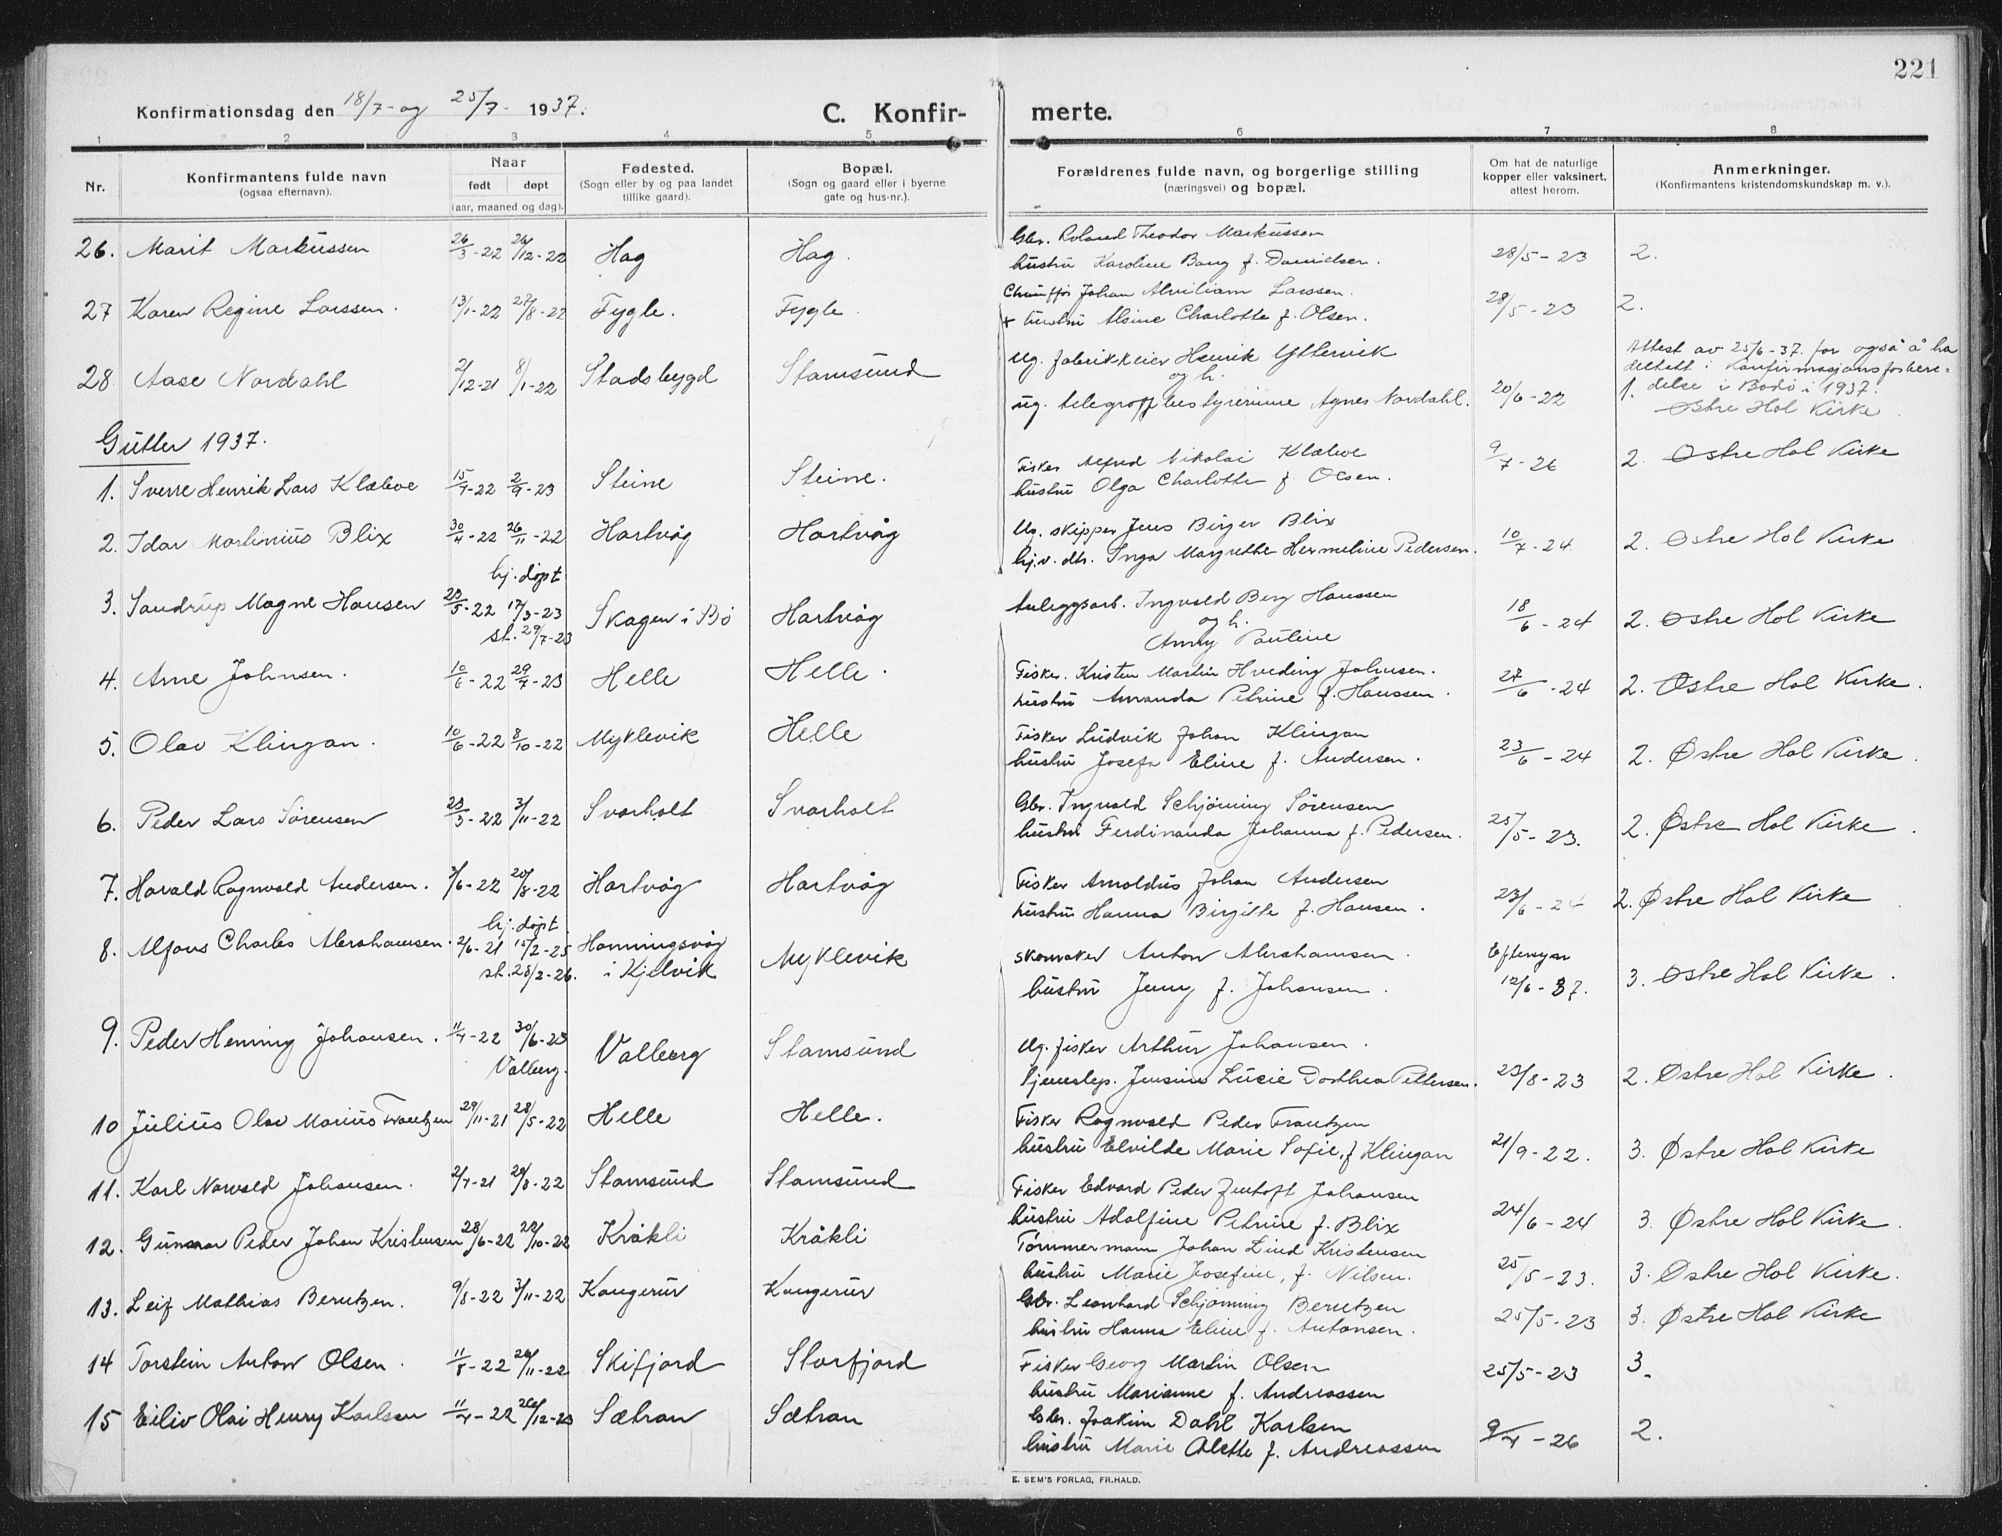 221
Konfirmationsdag den 18/7- og 25/7- 1937.
C. Konfir-
merte.
1 2 3 4 5 6 7 8
Nr.
Konfirmantens fulde navn
(ogsaa efternavn).
Naar
født døpt
(aar, maaned og dag).
Fødested.
(Sogn eller by og paa landet
tillike gaard).
Bopæl.
(Sogn og gaard eller i byerne
gate og hus-nr.).
Forældrenes fulde navn, og borgerlige stilling
(næringsvei) og bopæl.
Om hat de naturlige
kopper eller vaksinert,
attest herom.
Anmerkninger.
(Konfirmantens kristendomskundskap m. v.).
26. Marit Markussen 26/3-22 26/12-22 Hag Hag. Gbr. Roland Theodor Markussen 28/5-23 2.
hustru Karoline Bang f. Danielsen.
27 Karen Regine Larssen. 13/1-22 27/8-22 Fygle. Fygle. Chauffør Johan Alviliam Larssen. 28/5-23 2.
+ hustru Alsine Charlotte f. Olsen.
28 Aase Nordahl 2/12-21 8/1-22 Stadsbygd Stamsund Ug. fabrikkeier Henrik Yttervik
og h.
ug. telegrafbestyrerinne Agnes Nordahl. 20/6-22 1.
Attest av 25/6-37. for også å ha
deltatt i Konfirmasjonsforbere-
delse i Bodø i 1937.
Østre Hol Kirke
Gutter 1937.
1. Sverre Henrik Lars Klæboe 15/7-22 2/9-23 Steine Steine. Fisker Alfred Nikolai Klæboe 9/7-26 2. Østre Hol Kirke
hustru Olga Charlotte f. Olsen.
2. Idar Martinius Blix 30/4-22 26/11-22 Hartvåg Hartvåg Ug. skipper Jens Birger Blix 10/7-24 2. Østre Hol Kirke
hj.v. dtr. Inga Margrethe Hermeline Pedersen.
hj. døpt
3. Sandrup Magne Hansen 23/5-22 17/3-23 Skagen i Bø Hartvåg Anleggsarb. Ingvald Berg Hanssen 18/6-24 2. Østre Hol Kirke
st. 29/7-23 og h.
Anny Pauline
4. Arne Johnsen. 10/6-22 29/7-23 Helle Helle. Fisker. Kristen Martin Hveding Johnsen. 27/6-24 2. Østre Hol Kirke.
hustru Amanda Petrine f. Hanssen.
5. Olav Klingan. 10/6-22 8/10-22 Myklevik Helle Fisker Ludvik Johan Klingan 23/6-24 2. Østre Hol Kirke.
hustru Josefa Eline f. Andersen.
6. Peder Lars Sørensen 23/3-22 3/11-22 Svarholt Svarholt Gbr. Ingvald Schjønning Sørensen 25/5-23. 2. Østre Hol Kirke.
hustru Ferdinanda Johanna f. Pedersen.
7. Harald Ragnvald Andersen. 3/6-22 20/8-22 Hartvåg Hartvåg Fisker Arnoldus Johan Andersen 23/6-24 2. Østre Hol Kirke
hustru Hanna Birgitte f. Hansen.
hj. døpt
8. Alfons Charles Abrahamsen. 2/6-21 15/2-25 Honningsvåg Myklevik skomaker Anton Abrahamsen. Eftersyn 3. Østre Hol Kirke.
st. 28/2-26. i Kjelvik hustru Jenny f. Johansen. 12/6-37.
9. Peder Henning Johansen. 11/4-22 30/6-23 Valberg Stamsund Ug. fisker Arthur Johansen.
Valberg. tjenestep. Jensine Lucie Dorthea Pettersen. 23/8-23 2. Østre Hol Kirke.
10 Julius Olav Marius Frantzen 29/11-21 28/5-22 Helle Helle. Fisker Ragnvald Peder Frantzen
hustru Elvilde Marie Sofie, f Klingan 21/9-22. 3. Østre Hol Kirke
11. Karl Norvald Johansen. 2/7-21 20/8-22 Stamsund Stamsund Fisker Edvard Peder Zentoft Johansen
hustru Adolfine Petrine f. Blix 24/6-24 3. Østre Hol Kirke.
12. Gunnar Peder Johan Kristensen 28/6-22 22/10-22 Kråkli Kråkli Tømmermann Johan Lind Kristensen
hustru Marie Josefine, f. Nilsen. 25/5-23. 3. Østre Hol Kirke.
13. Leif Mathias Berntzen. 9/8-22 3/11-22 Kangerur Kangerur Gbr. Leonhard Schjønning Berntzen 25/5-23 3. Østre Hol Kirke
hustru Hanna Eline f. Antonsen.
14 Torstein Anton Olsen. 11/8-22 26/11-22 Skifjord Storfjord Fisker Georg Martin Olsen 25/5-23 3.
hustru Marianne f. Andreassen
15 Eiliv Olai Henry Karlsen 11/4-22 26/12-23 Sætran Sætran Gbr. Joakim Dahl Karlsen 9/7-26 2.
hustru Marie Alette f. Andreassen
E. SEM'S FORLAG, FR.HALD.